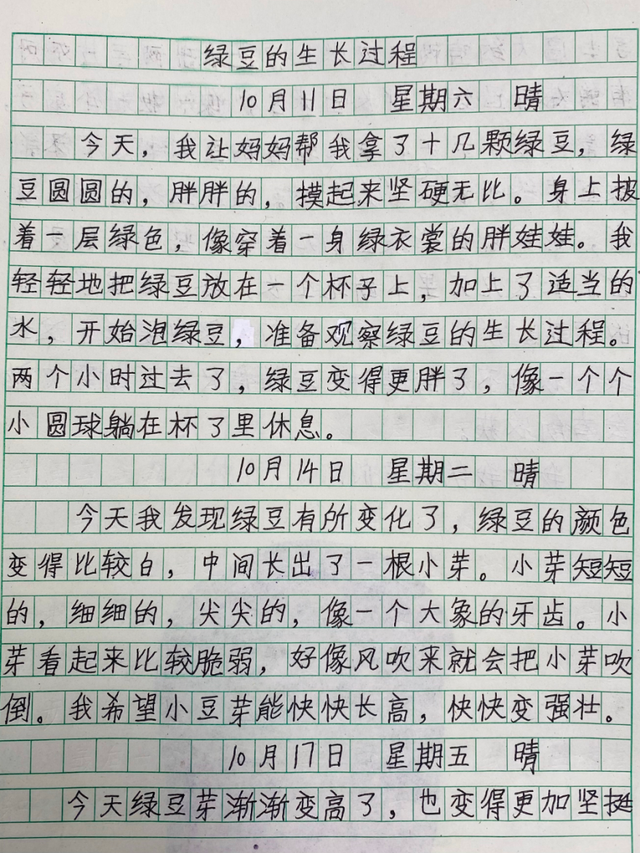 绿豆的生长过程
10月11日 星期六 晴
今天，我让妈妈帮我拿了十几颗绿豆，绿
豆圆圆的，胖胖的，摸起来坚硬无比。身上披
着一层绿色，像穿着一身绿衣裳的胖娃娃。我
轻轻地把绿豆放在一个杯子上，加上了适当的
水，开始泡绿豆，准备观察绿豆的生长过程。
两个小时过去了，绿豆变得更胖了，像一个个
小圆球躺在杯了里休息。
10月14日 星期二 晴
今天我发现绿豆有所变化了，绿豆的颜色
变得比较白，中间长出了一根小芽。小芽短短
的，细细的，尖尖的，像一个大象的牙齿。小
芽看起来比较脆弱，好像风吹来就会把小芽吹
倒。我希望小豆芽能快快长高，快快变强壮。
10月17日 星期五 晴
今天绿豆芽渐渐变高了，也变得更加坚挺